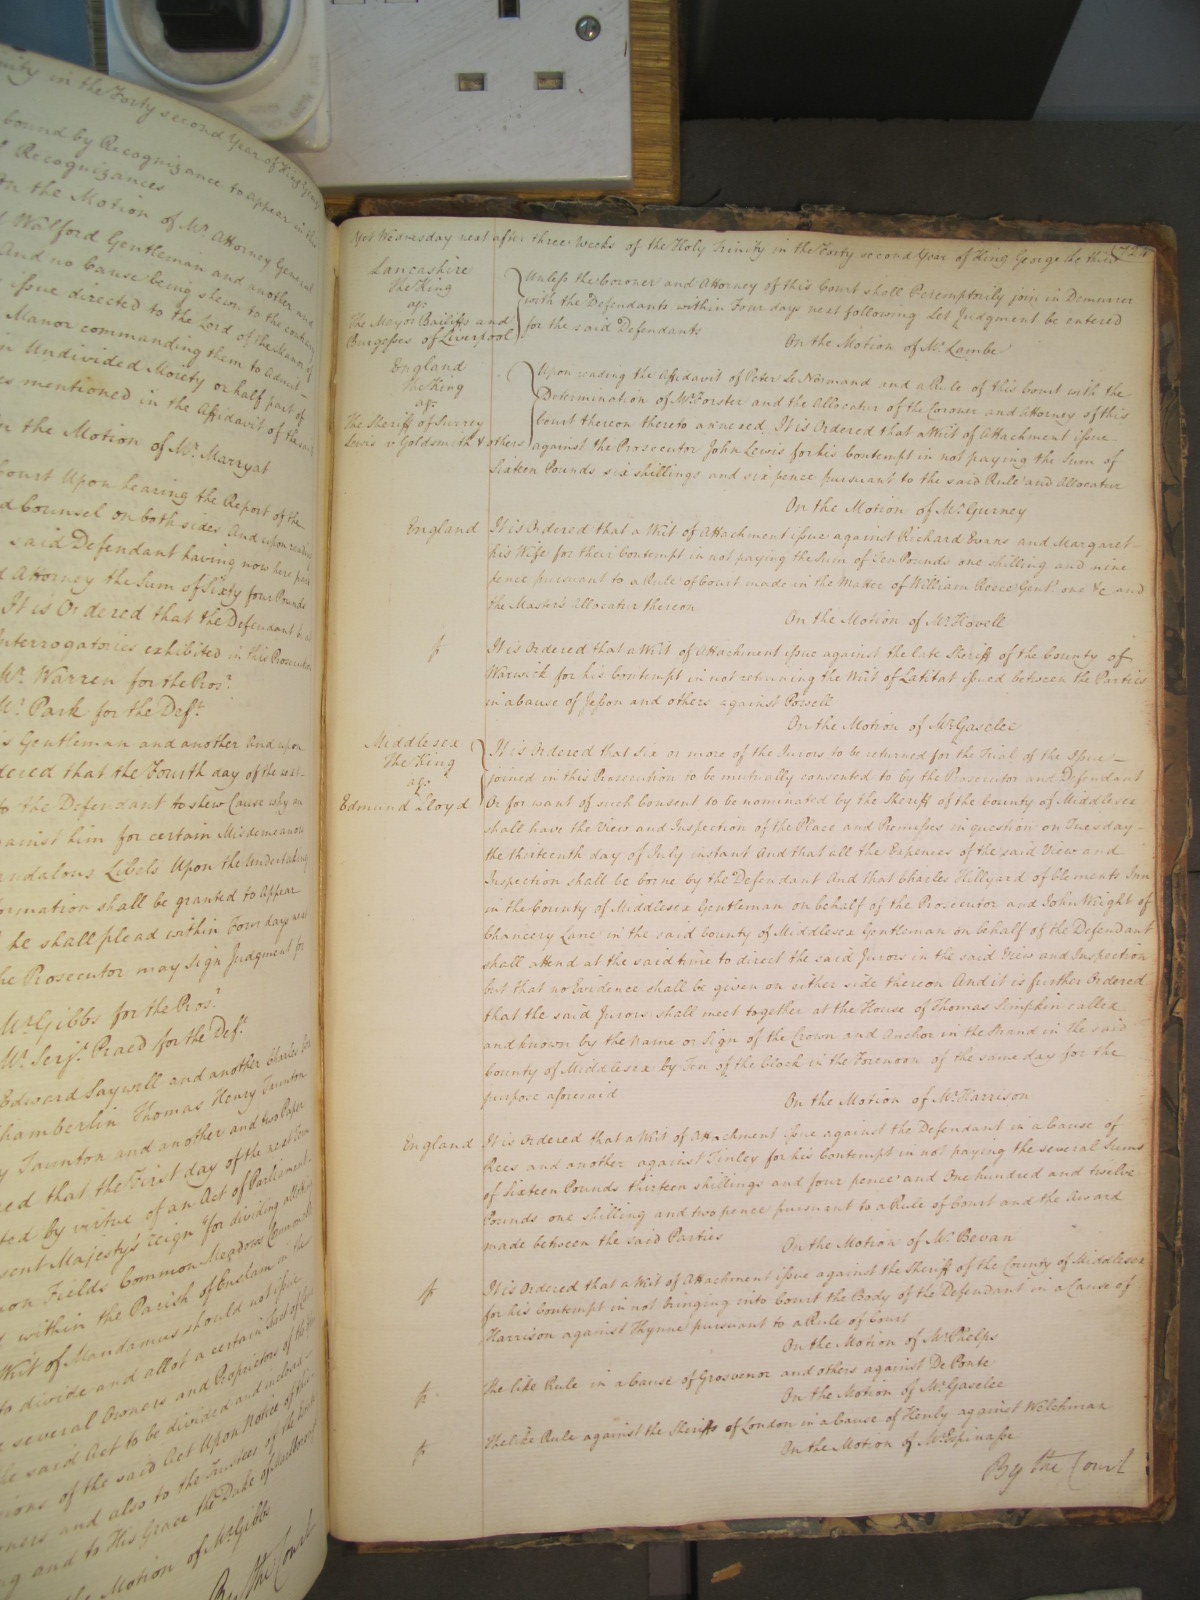 nity in the Forty second Year of King George
bound by Recognizance to appear in this
Recognizances
On the Motion of Mr. Attorney General
Walford Gentleman and another and
And no Cause being shewn to the contrary
issue directed to the Lord of the Manor of
Manor commanding them to Admit
Undivided Moiety or half part of
mentioned in the Affidavit of the said
the Motion of Mr. Marryat
Court Upon hearing the Report of the
Counsel on both sides And upon reading
said Defendant having now here paid
Attorney the Sum of Sixty four Pounds
It is Ordered that the Defendant be
Interrogatories exhibited in this Prosecution
Mr. Warren for the Pros.r
Mr. Park for the Def.t
Gentleman and another And upon
dered that the Fourth day of the next
to the Defendant to shew Cause why an
against him for certain Misdemeanors
andalous Libels Upon the Undertaking
formation shall be granted to Appear
he shall plead within Four days and
the Prosecutor may sign Judgment for
Mr. Gibbs for the Pros.r
Mr. Serj.t Praed for the Def.t
Edward Saywell and another Charles
Chamberlin Thomas Henry Taunton
Taunton and another and two Paper
red that the First day of the next Term
ted by virtue of an Act of Parliament
sent Majesty's reign "for dividing
Fields Common Meadows
within the Parish of Ensham in the
Writ of Mandamus should not issue
to divide and allot a certain
several Owners and Proprietors of the
the said Act to be divided and inclosed
of the said Act Upon Notice of this
ners and also to the Trustees of the
and to His Grace the Duke of Marlborough
Motion of Mr. Gibbs
By the Court
Yet Wednesday next after three Weeks of the Holy Trinity in the Forty second Year of King George the third
Lancashire
The King
ag.t
The Mayor Bailiffs and
Burgesses of Liverpool
Unless the Coroner and Attorney of this Court shall Peremptorily join in Demurrer
with the Defendants within Four days next following Let Judgment be entered
for the said Defendants
On the Motion of Mr. Lambe
England
The King
ag.t
The Sheriff of Surrey
Lewis v Goldsmith & others
Upon reading the Affidavit of Peter Le Normand and a Rule of this Court with the
Determination of Mr. Forster and the Allocatur of the Coroner and Attorney of this
Court thereon thereto annexed It is Ordered that a Writ of Attachment issue
against the Prosecutor John Lewis for his Contempt in not paying the Sum of
Sixteen Pounds six shillings and six pence pursuant to the said Rule and Allocatur
On the Motion of Mr. Gurney
England It is Ordered that a Writ of Attachment issue against Richard Evans and Margaret
his Wife for their Contempt in not paying the Sum of Ten Pounds one shilling and nine
pence pursuant to a Rule of Court made in the Matter of William Reece Gent. one &c and
the Master's Allocatur thereon
On the Motion of Mr. Howell
It is Ordered that a Writ of Attachment issue against the late Sheriff of the County of
Warwick for his Contempt in not returning the Writ of Latitat issued between the Parties
in a Cause of Jesson and others against Powell
On the Motion of Mr. Gaselee
Middlesex
The King
ag.t
Edmund Lloyd
It is Ordered that Six or more of the Jurors to be returned for the Trial of the Issue
joined in this Prosecution to be mutually consented to by the Prosecutor and Defendant
Or for want of such Consent to be nominated by the Sheriff of the County of Middlesex
shall have the View and Inspection of the Place and Premisses in question on Tuesday
the thirteenth day of July instant And that all the Expences of the said View and
Inspection shall be borne by the Defendant And that Charles Hillyard of Clements Inn
in the County of Middlesex Gentleman on behalf of the Prosecutor and John Wright of
Chancery Lane in the said County of Middlesex Gentleman on behalf of the Defendant
shall attend at the said time to direct the said Jurors in the said View and Inspection
but that no Evidence shall be given on either side thereon And it is further Ordered
that the said Jurors shall meet together at the House of Thomas Simpkin called
and known by the name or Sign of the Crown and Anchor in the Strand in the said
County of Middlesex by Ten of the Clock in the Forenoon of the same day for the
purpose aforesaid
On the Motion of Mr. Harrison
England It is Ordered that a Writ of Attachment issue against the Defendant in a Cause of
Rees and another against Tinley for his Contempt in not paying the several Sums
of Sixteen Pounds thirteen shillings and four pence and One hundred and twelve
Pounds one shilling and two pence pursuant to a Rule of Court and the Award
made between the said Parties
On the Motion of Mr. Bevan
It is Ordered that a Writ of Attachment issue against the Sheriff of the County of Middlesex
for his Contempt in not bringing into Court the Body of the Defendant in a Cause of
Harrison against Thynne pursuant to a Rule of Court
On the Motion of Mr. Phelps
The like Rule in a Cause of Grosvenor and others against De Ponte
On the Motion of Mr. Gaselee
The like Rule against the Sheriffs of London in a Cause of Henly against Welchman
On the Motion of Mr. Espinasse
By the Court